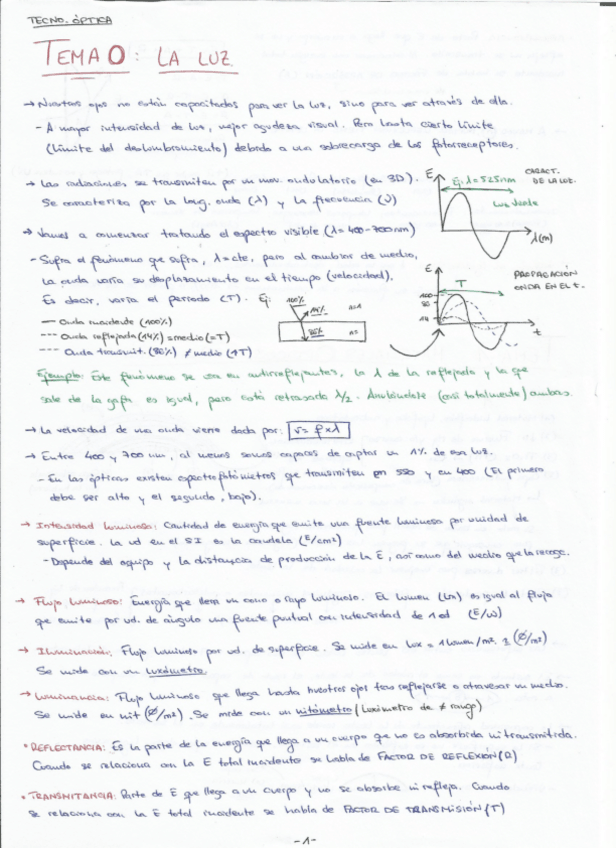 TECNO. ÓPTICA
TEMA 0: LA LUZ.
→ Nuestros ojos no están capacitados para ver la luz, sino para ver a través de ella.
- A mayor intensidad de luz, mejor agudeza visual. Pero hasta cierto límite
(límite del deslumbramiento) debido a una sobrecarga de los fotorreceptores.
→ Las radiaciones se transmiten por un mov. ondulatorio (en 3D).
Se caracteriza por la long. onda (λ) y la frecuencia (ν)
E
Ej. λ = 525nm
CARACT. DE LA LUZ.
Luz verde
λ(m)
→ Vamos a comenzar tratando el espectro visible (λ = 400-700nm)
- Sufra el fenómeno que sufra, λ = cte, pero al cambiar de medio,
la onda varía su desplazamiento en el tiempo (velocidad).
Es decir, varía el periodo (T). Ej:
100%
14%
86%
E
T
100
86
14
t
PROPAGACIÓN
ONDA EN EL t.
— Onda incidente (100%)
--- Onda reflejada (14%) = medio (=T)
--- Onda transmit. (86%) ≠ medio (↑T)
Ejemplo: Este fenómeno se usa en antirreflejantes, la λ de la reflejada y la que
sale de la gafa es igual, pero está retrasada λ/2. Anulándose (casi totalmente) ambas.
→ La velocidad de una onda viene dada por: v = f × λ
→ Entre 400 y 700 nm, al menos somos capaces de captar un 1% de esa luz.
- En las ópticas existen espectrofotómetros que transmiten en 550 y en 400 (El primero
debe ser alto y el segundo, bajo).
→ Intensidad luminosa: Cantidad de energía que emite una fuente luminosa por unidad de
superficie. La ud en el SI es la candela (E/cm²)
- Depende del equipo y la distancia de producción de la E, así como del medio que la recoge.
→ Flujo luminoso: Energía que lleva un cono o rayo luminoso. El lumen (Lm) es igual al flujo
que emite por ud. de ángulo una fuente puntual con intensidad de 1 cd (E/ω)
→ Iluminación: Flujo luminoso por ud. de superficie. Se mide en lux = 1 lumen/m². (Ø/m²)
Se mide con un luxómetro.
→ Luminancia: Flujo luminoso que llega hasta nuestros ojos tras reflejarse o atravesar un medio.
Se mide en nit (Ø/m²). Se mide con un nitómetro (luxómetro de ≠ rango)
• REFLECTANCIA: Es la parte de la energía que llega a un cuerpo que no es absorbida ni transmitida.
Cuando se relaciona con la E total incidente se habla de FACTOR DE REFLEXIÓN (R)
• TRANSMITANCIA: Parte de E que llega a un cuerpo y no se absorbe ni refleja. Cuando
se relaciona con la E total incidente se habla de FACTOR DE TRANSMISIÓN (T)
-1-